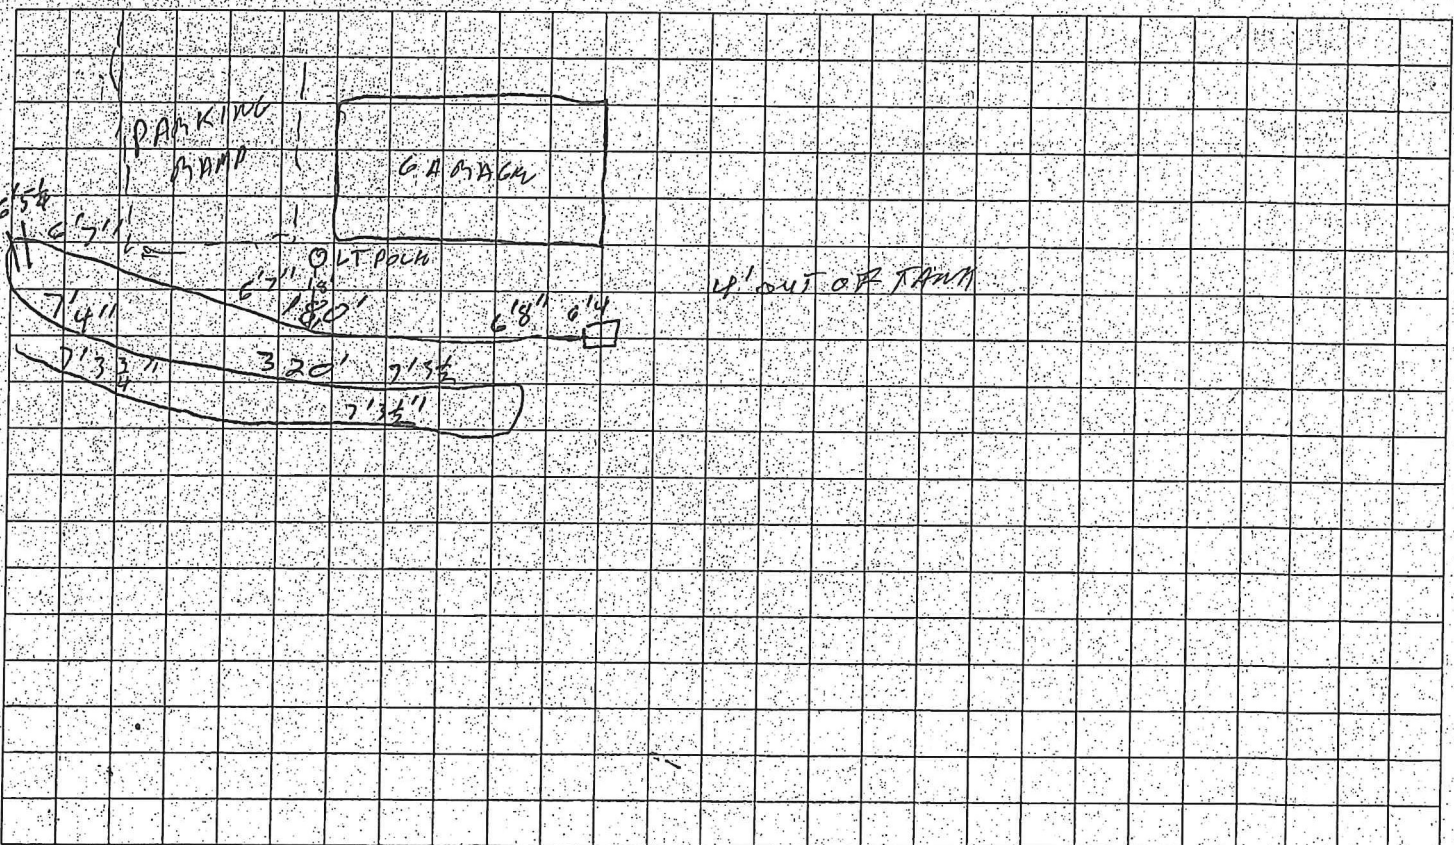 PARKING
RAMP
GARAGE
6'5¼
6'7"
O LT POLE
6'7"
180'
6'8"
6'4
4' OUT OF TANK
7'4"
7'3¾"
320'
7'3½
7'3½"